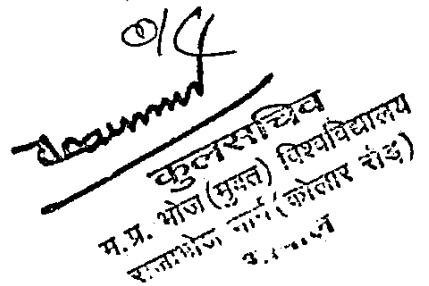 कुलसचिव
म.प्र. भोज (मुक्त) विश्वविद्यालय
राजाभोज मार्ग (कोलार रोड)